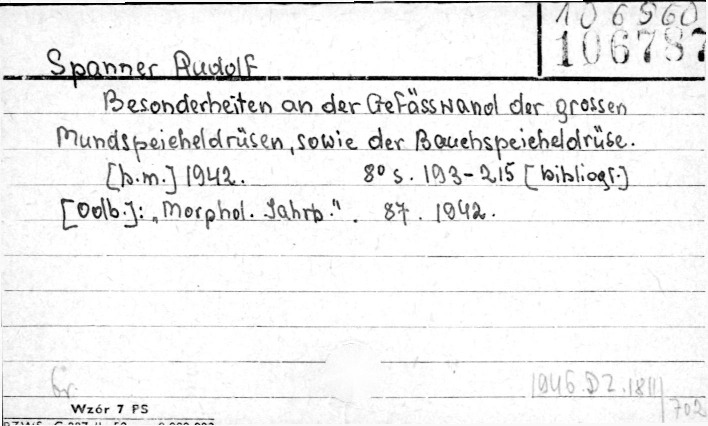 106960
106787
Spanner Rudolf
Besonderheiten an der Gefässwand der grossen
Mundspeicheldrüsen, sowie der Bauchspeicheldrüse.
[b.m.] 1942. 8° s. 193-215 [bibliogr.]
[Odb.]: "Morphol. Jahrb.". 87. 1942.
1946.D2.1811
702
Wzór 7 PS